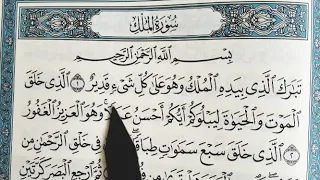 سُورَةُ المُلْكِ
بِسْمِ اللَّهِ الرَّحْمَٰنِ الرَّحِيمِ
تَبَٰرَكَ الَّذِي بِيَدِهِ الْمُلْكُ وَهُوَ عَلَىٰ كُلِّ شَيْءٍ قَدِيرٌ ١ الَّذِي خَلَقَ
الْمَوْتَ وَالْحَيَوٰةَ لِيَبْلُوَكُمْ أَيُّكُمْ أَحْسَنُ وَهُوَ الْعَزِيزُ الْغَفُورُ
٢ الَّذِي خَلَقَ سَبْعَ سَمَٰوَٰتٍ طِبَاقًا فِي خَلْقِ الرَّحْمَٰنِ مِن
ثُمَّ ارْجِعِ الْبَصَرَ كَرَّتَيْنِ